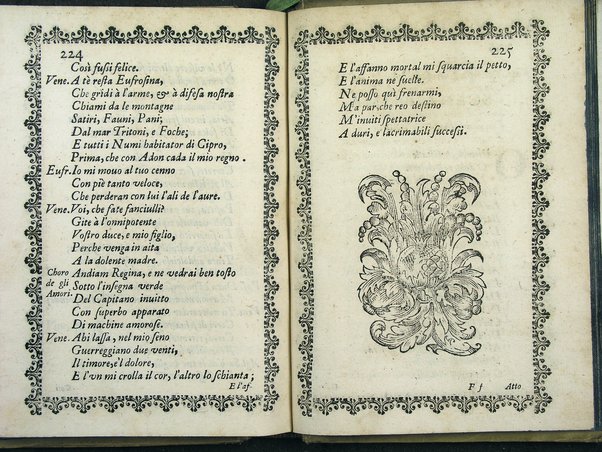 224
Così fussi felice.
Vene. A tè resta Eufrosina,
Che gridi à l'arme, & à difesa nostra
Chiami da le montagne
Satiri, Fauni, Pani;
Dal mar Tritoni, e Foche;
E tutti i Numi habitator di Cipro,
Prima, che con Adon cada il mio regno.
Eufr. Io mi mouo al tuo cenno
Con piè tanto veloce,
Che perderan con lui l'ali de l'aure.
Vene. Voi, che fate fanciulli?
Gite à l'onnipotente
Vostro duce, e mio figlio,
Perche venga in aita
A la dolente madre.
Choro de gli Amori. Andiam Regina, e ne vedrai ben tosto
Sotto l'insegna verde
Del Capitano inuitto
Con superbo apparato
Di machine amorose.
Vene. Ahi lassa, nel mio seno
Guerreggiano due venti,
Il timore, e'l dolore,
E l'vn mi crolla il cor, l'altro lo schianta;
E l'af-
225
E l'affanno mortal mi squarcia il petto,
E l'anima ne suelle.
Ne posso quì frenarmi,
Ma par, che reo destino
M'inuiti spettatrice
A duri, e lacrimabili successi.
F f Atto